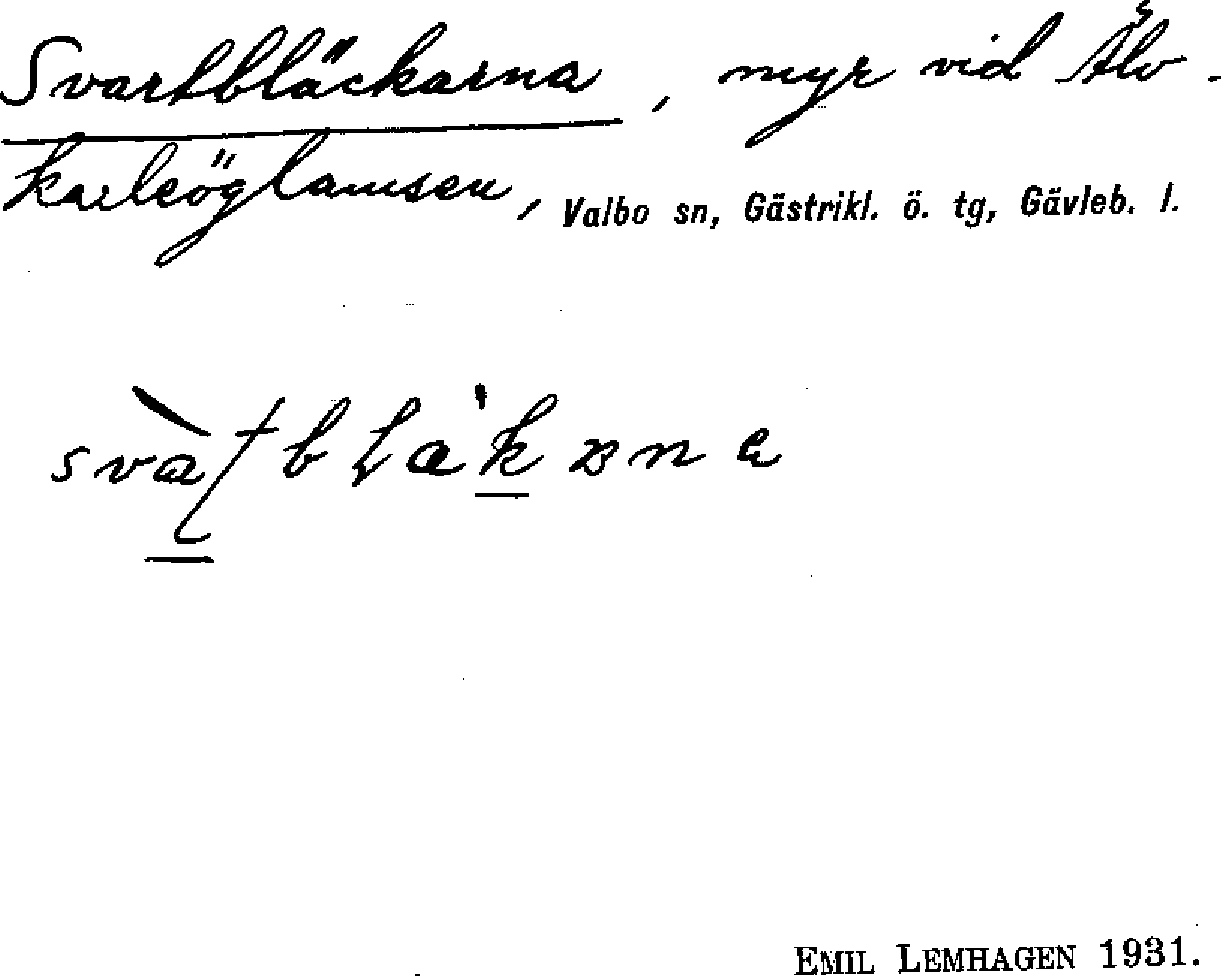 Svartbläckarna, myr vid Älv-
karleöglamsen, Valbo sn, Gästrikl. ö. tg, Gävleb. l.
EMIL LEMHAGEN 1931.